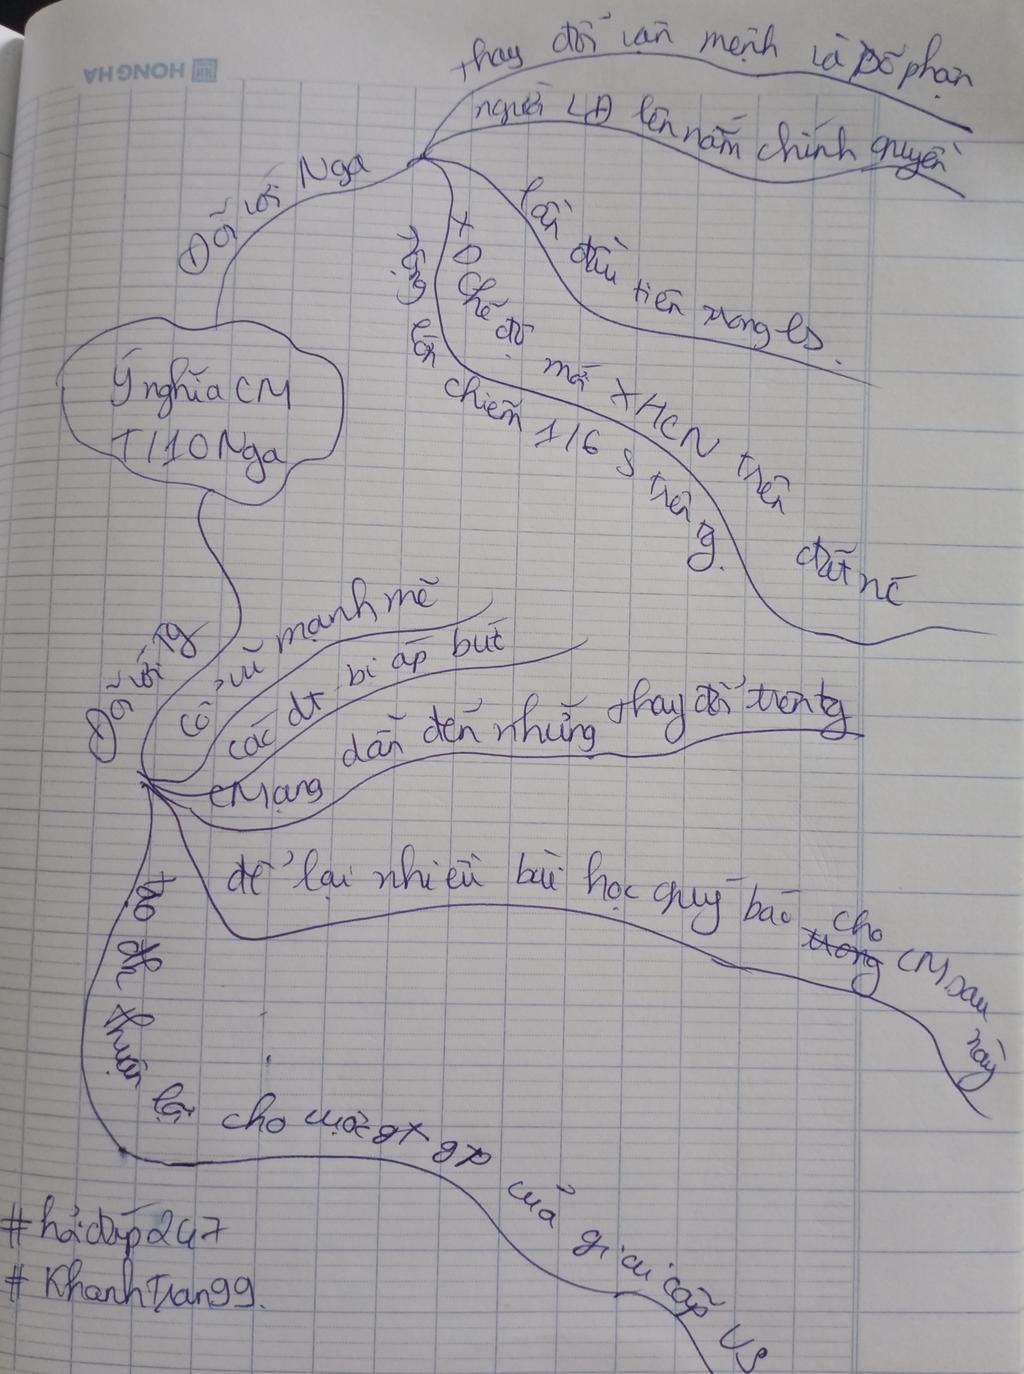 HONG HA
Ý nghĩa CM
T/10 Nga
Đối với Nga
thay đổi vận mệnh và số phận
người LĐ lên nắm chính quyền
lần đầu tiên trong LS.
XD chế độ mới XHCN trên đất nc
rộng lớn chiếm 1/6 S trên tg.
Đối với Tg
cổ vũ mạnh mẽ
các dt bị áp bức
Mạng dẫn đến những thay đổi trên tg
để lại nhiều bài học quý báo cho CM sau này
tạo đk thuận lợi cho cuộc gx gp của giai cấp VS
#hỏi đáp 247
#KhanhTran99.